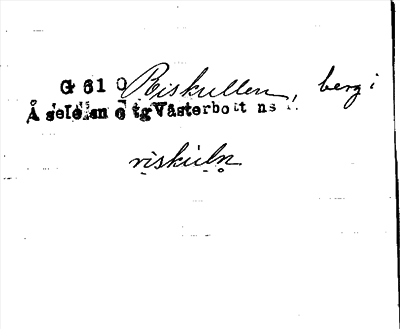 G 61 0 Riskullen, berg i
Å sele lsn
Västerbott ns
riskuln